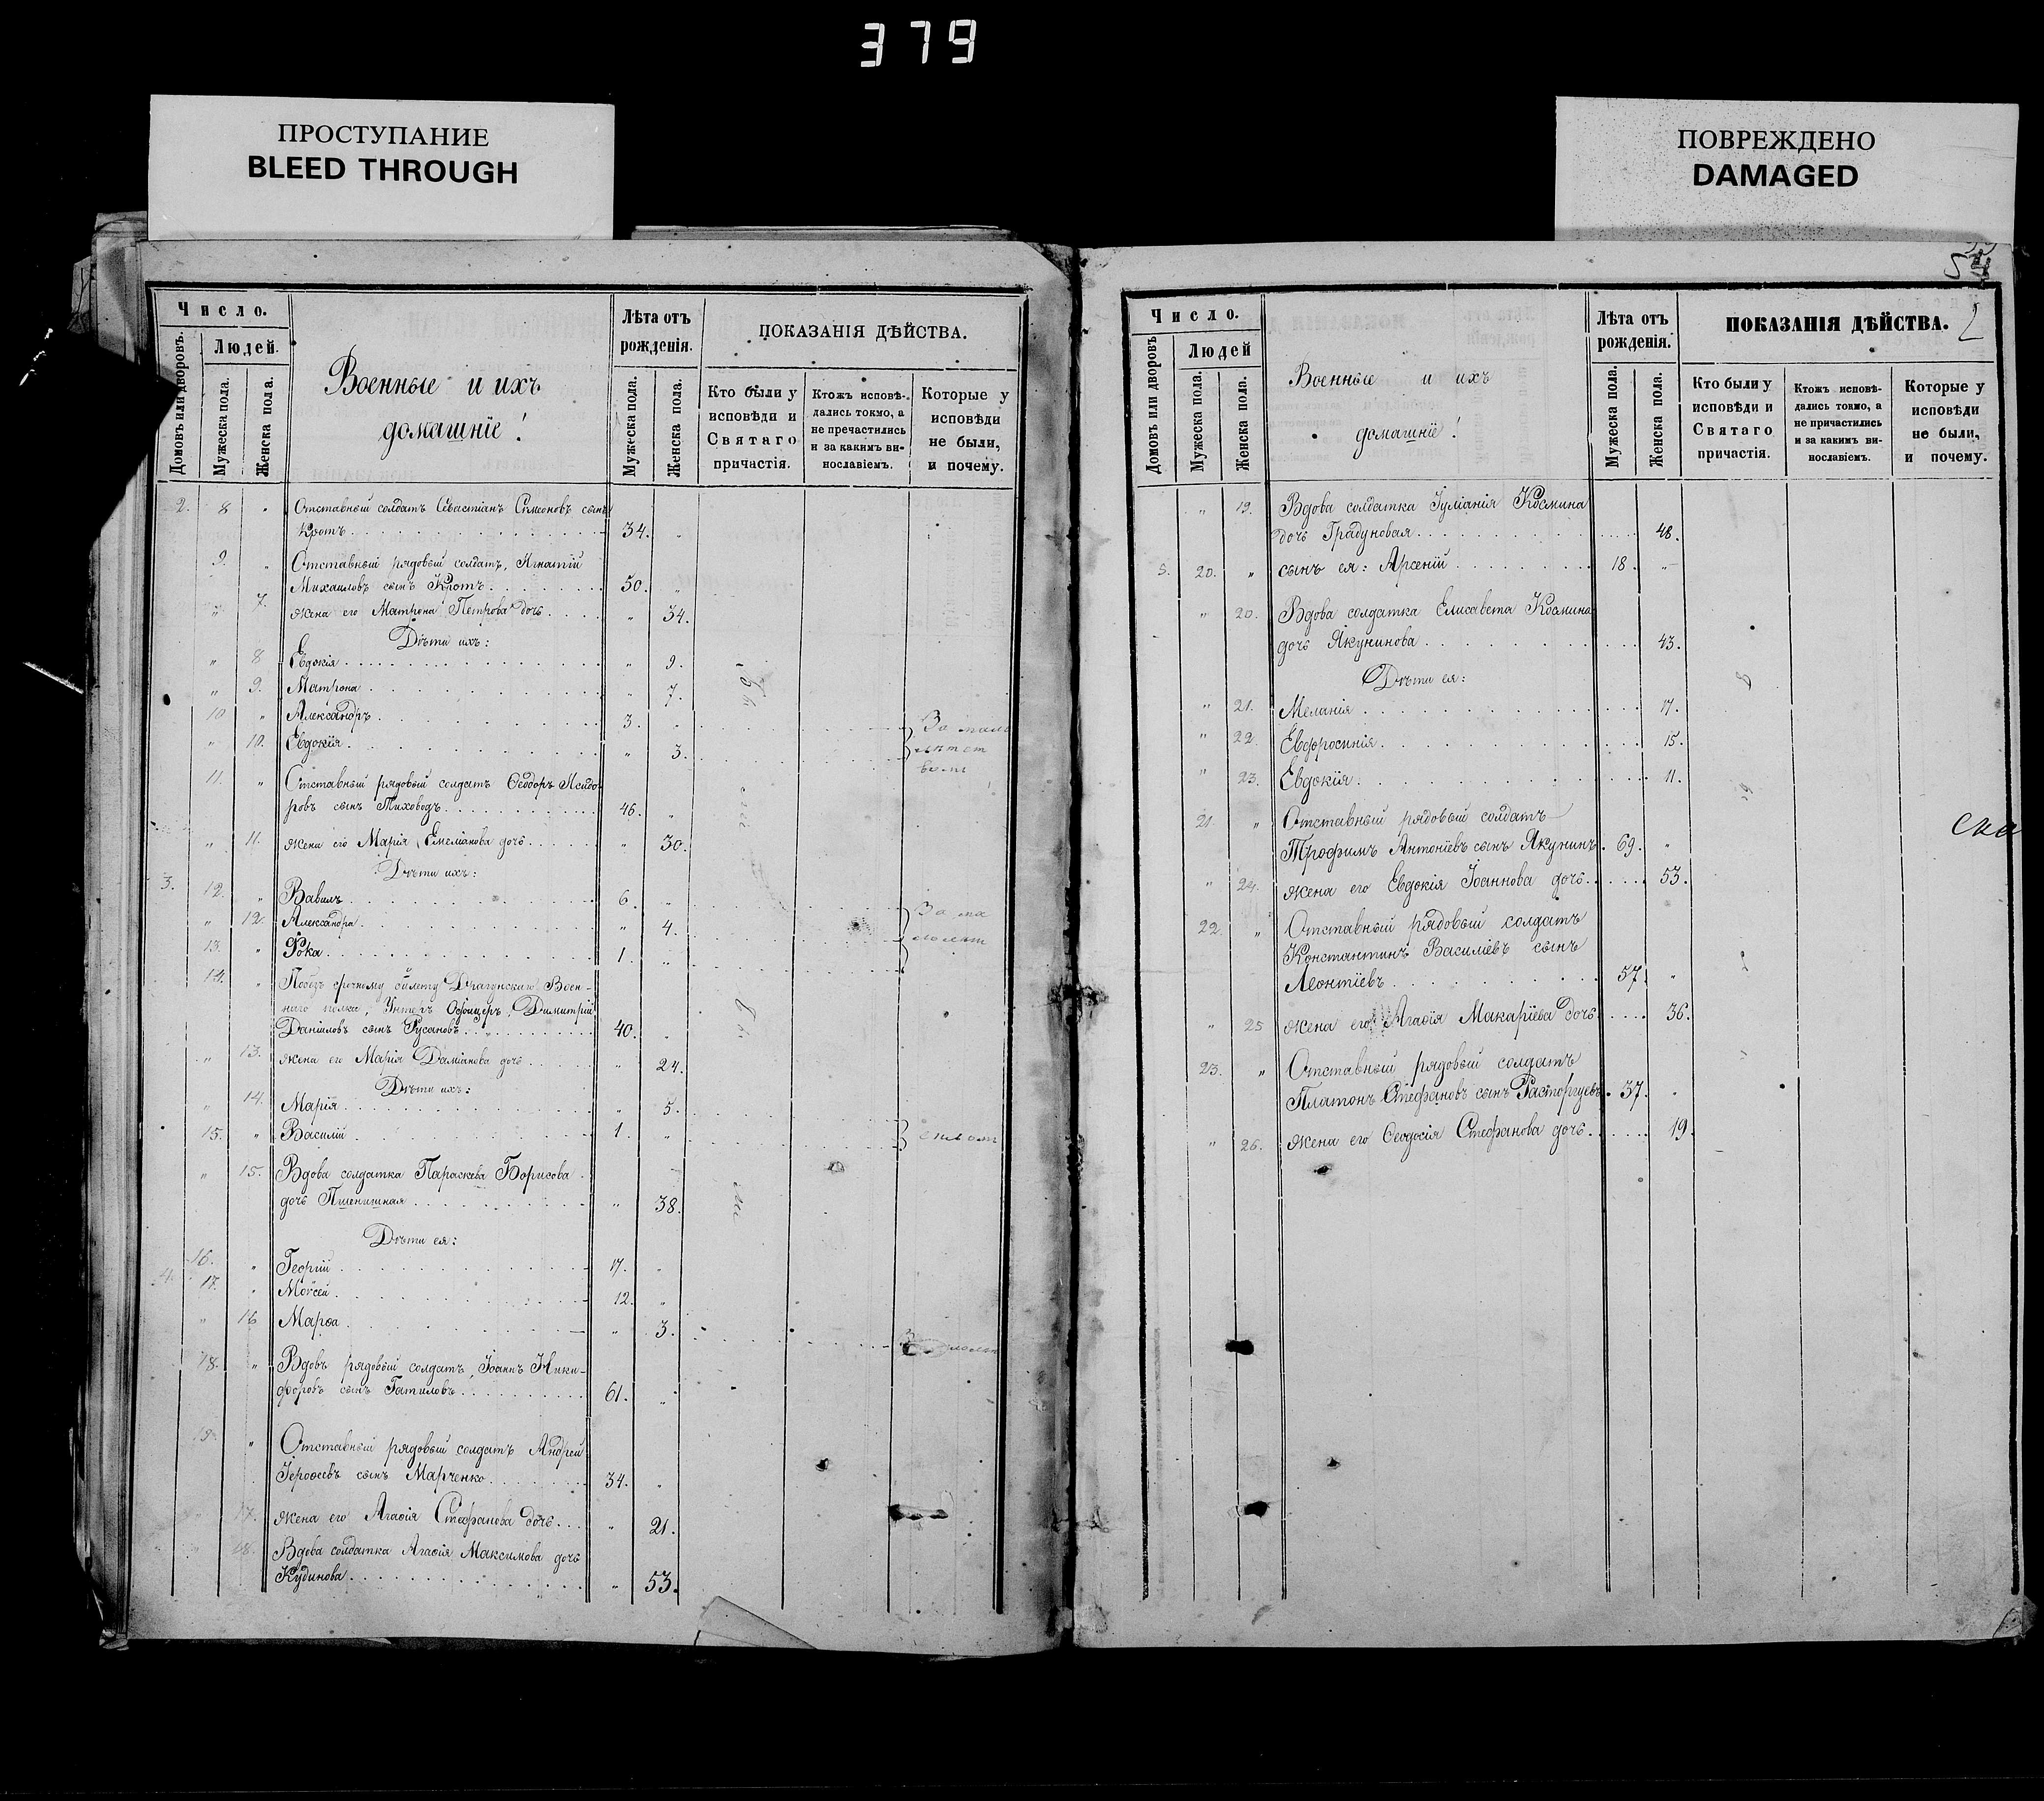 379
ПРОСТУПАНИЕ
BLEED THROUGH
ПОВРЕЖДЕНО
DAMAGED
Число.
Людей.
Домовъ или дворовъ.
Мужеска пола.
Женска пола.
Военные и ихъ
домашніе!
Лѣта отъ
рожденія.
Мужеска пола.
Женска пола.
ПОКАЗАНІЯ ДѢЙСТВА.
Кто были у
исповѣди и
Святаго
причастія.
Ктожъ исповѣ-
дались токмо, а
не пречастились
и за какимъ ви-
нославіемъ.
Которые у
исповѣди
не были,
и почему.
2. 8 " Отставный солдатъ Севастіанъ Симеоновъ сынъ
Кротъ 34. "
9. " Отставный рядовый солдатъ, Игнатій
Михаиловъ сынъ Кротъ 50. "
" 7. жена его Матрона Петрова дочь " 34.
Дѣти ихъ:
" 8 Евдокія " 9.
" 9. Матрона " 7.
10 " Александръ 3. "
" 10. Евдокія " 3.
11. " Отставный рядовый солдатъ Ѳеодоръ Исидо
ровъ сынъ Тиховодъ 46. "
" 11. жена его Марія Емеліанова дочь " 30.
Дѣти ихъ:
3. 12. " Вавилъ 6. "
" 12. Александра " 4.
13. " Фока 1. "
14. " срочному билету Драгунскаго Воен-
наго полка, Унтеръ Офицеръ, Димитрій
Даніиловъ сынъ Русановъ 40. "
" 13. жена его Марія Даміанова дочь " 24.
Дѣти ихъ:
" 14. Марія " 5.
15. " Василій 1. "
" 15. Вдова солдатка Параскева Борисова
дочь Пшенишная " 38.
Дѣти ея:
16. " Георгій 17. "
4. 17. " Моѵсей 12. "
" 16 Марѳа " 3.
18. " Вдовъ рядовый солдатъ, Іоаннъ Ники-
форовъ сынъ Гатиловъ 61. "
19. " Отставный рядовый солдатъ Андрей
Іероѳеевъ сынъ Марченко 34. "
" 17. жена его Агаѳія Стефанова дочь " 21.
" 18. Вдова солдатка Агаѳія Максимова дочь
Кудинова " 53.
Число.
Людей
Домовъ или дворовъ
Мужеска пола.
Женска пола.
Военные и ихъ
домашніе!
Лѣта отъ
рожденія.
Мужеска пола.
Женска пола.
ПОКАЗАНІЯ ДѢЙСТВА.
Кто были у
исповѣди и
Святаго
причастія.
Ктожъ исповѣ-
дались токмо, а
не пречастились
и за какимъ ви-
нославіемъ.
Которые у
исповѣди
не были,
и почему.
" 19. Вдова солдатка Іуліанія Космина
дочь Градуновая 48.
5. 20. " сынъ ея: Арсеній 18. "
" 20. Вдова солдатка Елисавета Космина
дочь Якунинова 43.
Дѣти ея:
" 21. Меланія 17.
" 22. Евфросинія 15.
" 23. Евдокія 11.
21 " Отставный рядовый солдатъ
Трофимъ Антоніевъ сынъ Якунинъ 69. "
" 24. жена его Евдокія Іоаннова дочь 53.
22. " Отставный рядовый солдатъ
Константинъ Василіевъ сынъ
Леонтіевъ 57. "
" 25 жена его Агаѳія Макаріева дочь 36.
23. " Отставный рядовый солдатъ
Платонъ Стефановъ сынъ Расторгуевъ 37. "
" 26. жена его Ѳеодосія Стефанова дочь 19.